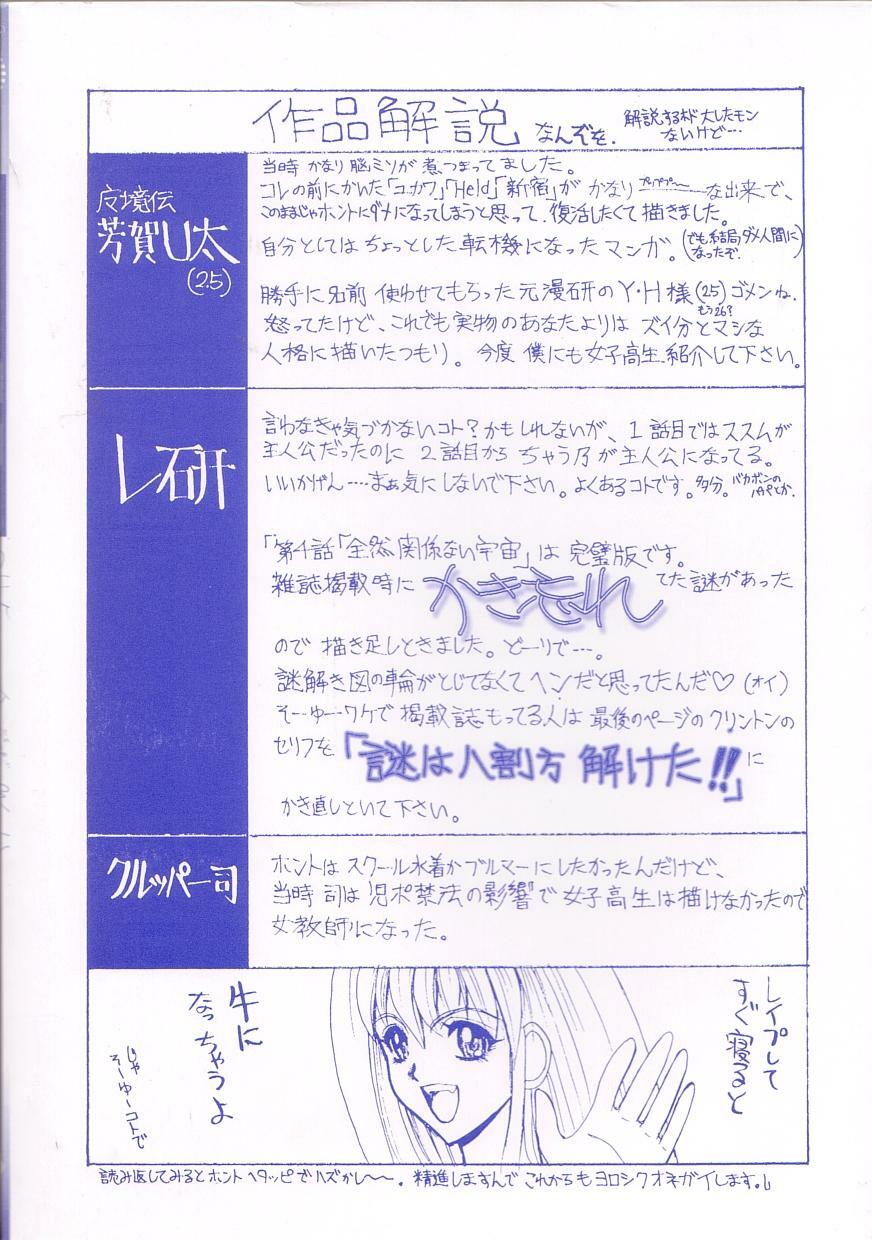 作品解説 なんぞを.
解説するホド大したモン
ないけど…
反境伝
芳賀U太
(25)
当時 かなり 脳ミソが 煮つまってました。
コレの前にかいた「ユカワ」「Held」「新宿」が かなり プーペペペ〜 な出来で、
このままじゃホントにダメになってしまうと思って、復活したくて描きました。
自分としてはちょっとした転機になったマンガ。(でも結局ダメ人間に
なったぞ.)
勝手に名前 使わせてもらった 元漫研のY・H様(25)ゴメンね.
もう26?
怒ってたけど、これでも実物のあなたよりは ズイ分とマシな
人格に描いたつもり。 今度 僕にも女子高生 紹介して下さい。
レ研
言わなきゃ気づかないコト?かもしれないが、1話目ではススムが
主人公だったのに 2話目から ちゃう乃が主人公になってる。
いいかげん……まぁ気にしないで下さい。よくあるコトです。多分。バカボンの
パパとか.
「第4話「全然関係ない宇宙」は 完璧版です。
雑誌掲載時に かき忘れ てた謎があった
ので 描き足しときました。どーりで…。
謎解き図の輪がとじてなくて ヘンだと思ってたんだ♡(オイ)
そーゆーワケで 掲載誌もってる人は 最後のページのクリントンの
セリフを 「謎は八割方 解けた!!」に
かき直しといて下さい。
クルッパー司
ホントは スクール水着かブルマーにしたかったんだけど、
当時 司は"児ポ禁法の影響"で 女子高生は描けなかったので
女教師になった。
レイプして
すぐ寝ると
牛に
なっちゃうよ
じゃ
そーゆーコトで
読み返してみるとホント ヘタッピでハズかし〜〜. 精進しますんで これからも ヨロシクオネガイします。